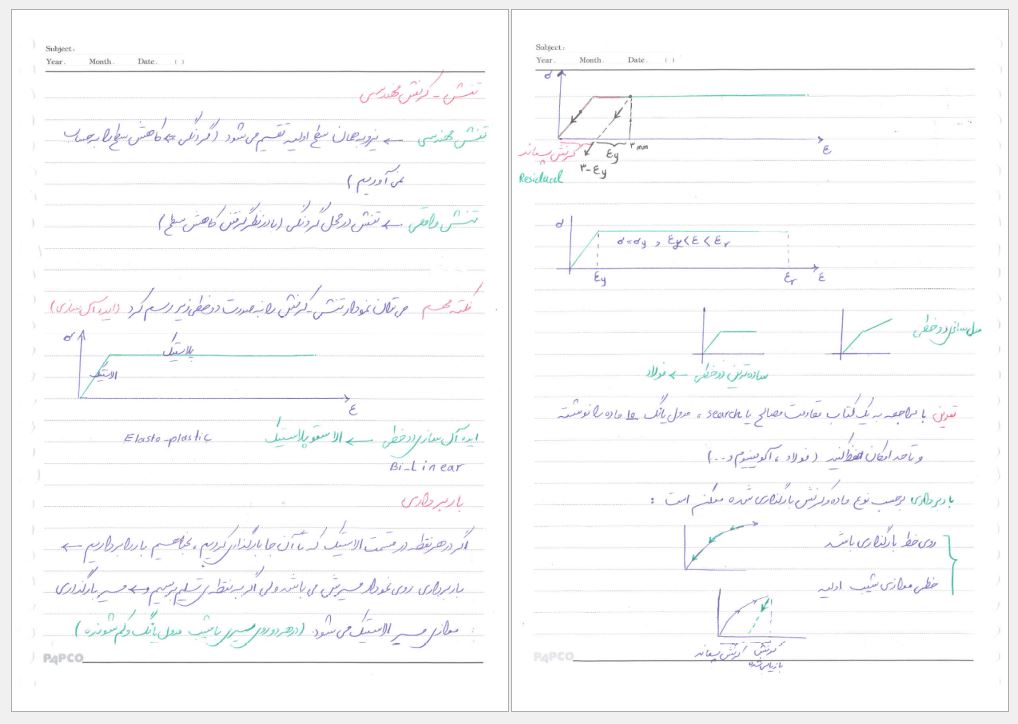 Subject:
Year. Month. Date. ( )
تنش - کرنش مهندسی
تنش مهندسی ← نیرو به همان سطح اولیه تقسیم می شود (گردنگی کاهش سطح را به حساب
نمی آوریم)
تنش واقعی ← تنش در محل گردنگی (با در نظر گرفتن کاهش سطح)
نکته مهم می توان نمودار تنش-کرنش را به صورت دو خطی زیر رسم کرد (ایده آل سازی)
σ
پلاستیک
الاستیک
ε
ایده آل سازی دو خطی ← الاستوپلاستیک Elasto-plastic
Bi-Linear
باربرداری
اگر در هر نقطه در قسمت الاستیک که تا آن جا بارگذاری کردیم، بخواهیم بار را برداریم ←
باربرداری روی نمودار مسیرش می باشد ولی اگر به نقطه ی تسلیم برسیم ← مسیر بارگذاری
موازی مسیر الاستیک می شود (در هر دو روی مسیری با شیب مدول یانگ کم شونده)
PAPCO
Subject:
Year. Month. Date. ( )
σ
ε
۳ mm
εy
۳-εy
کرنش پسماند
Residual
σ
σ=σy , εy<ε<εr
εy
εr
ε
مدل سازی دو خطی
ساده ترین دو خطی ← فولاد
تمرین با مراجعه به یک کتاب مقاومت مصالح یا search، مدول یانگ ماده را نوشته
و تا حد امکان حفظ کنید (فولاد، آلومینیوم و...)
باربرداری برحسب نوع ماده و کرنش بارگذاری شده ممکن است :
روی خط بارگذاری باشد
خطی موازی شیب اولیه
کرنش پسماند
کرنش
بازیابی شده
PAPCO